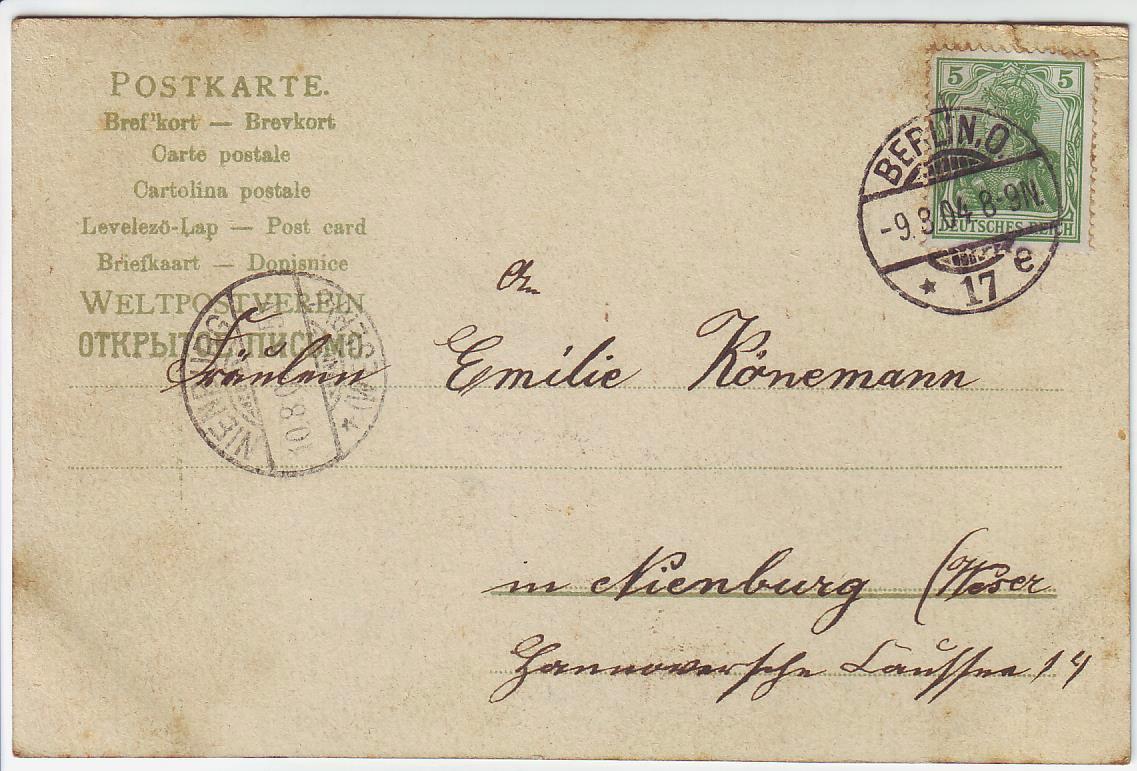 POSTKARTE.
Bref'kort — Brevkort
Carte postale
Cartolina postale
Levelező-Lap — Post card
Briefkaart — Dopisnice
WELTPOSTVEREIN
ОТКРЫТОЕ ПИСЬМО.
5 5
DEUTSCHES REICH
BERLIN, O.
-9.3.04 8-9N.
* 17 e
NIENBURG (WESER) *
An
Fräulein Emilie Könemann
in Nienburg (Weser
Hannoversche Caussee 14